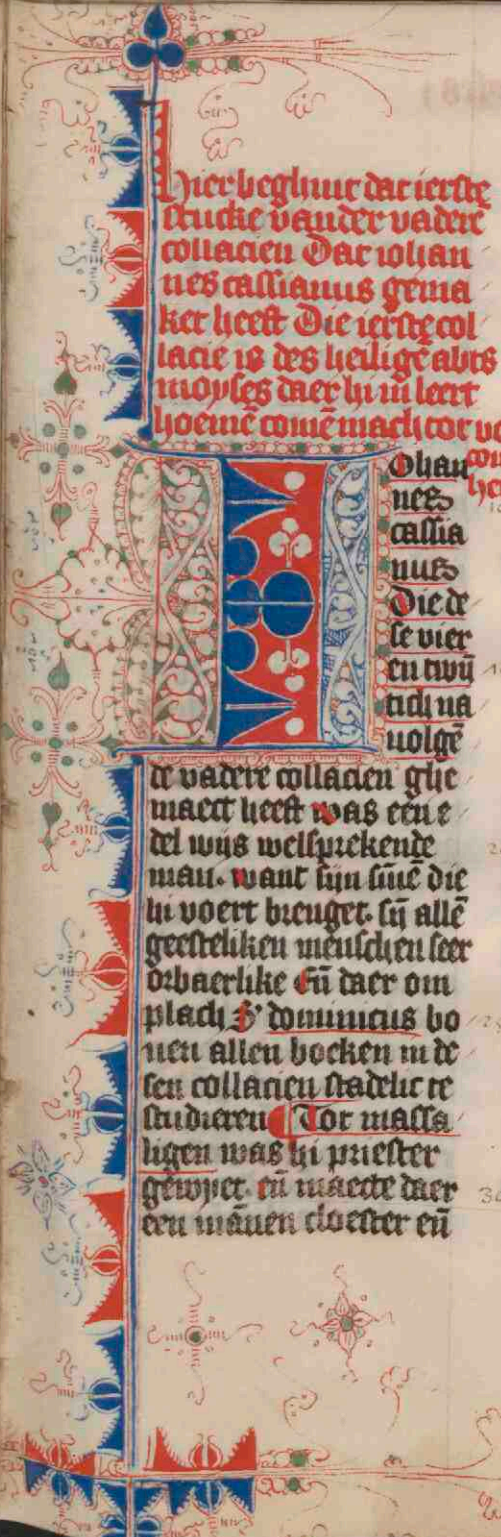 Hier beghint dat ierste
stucke vander vadere
collacien Dat iohan
nes cassianus gema
ket heeft Die ierste col
lacie is des heiligē abts
moyses daer hi in leert
hoemē comē mach tot
Iohan
nes
cassia
nus
Die de
se vier
en twĩ
tich na
uolgē
de vadere collacien ghe
maect heeft was een e
del wijs welsprekende
man. want sijn sinnē die
hi voert brenget. sij allē
geesteliken menschen seer
orbaerlike eñ daer om
plach s' dominicus bo
uen allen boeken in de
sen collacien stadelic te
studieren Tot massa
ligen was hi priester
gewijet. eñ maecte daer
een mānen cloester eñ